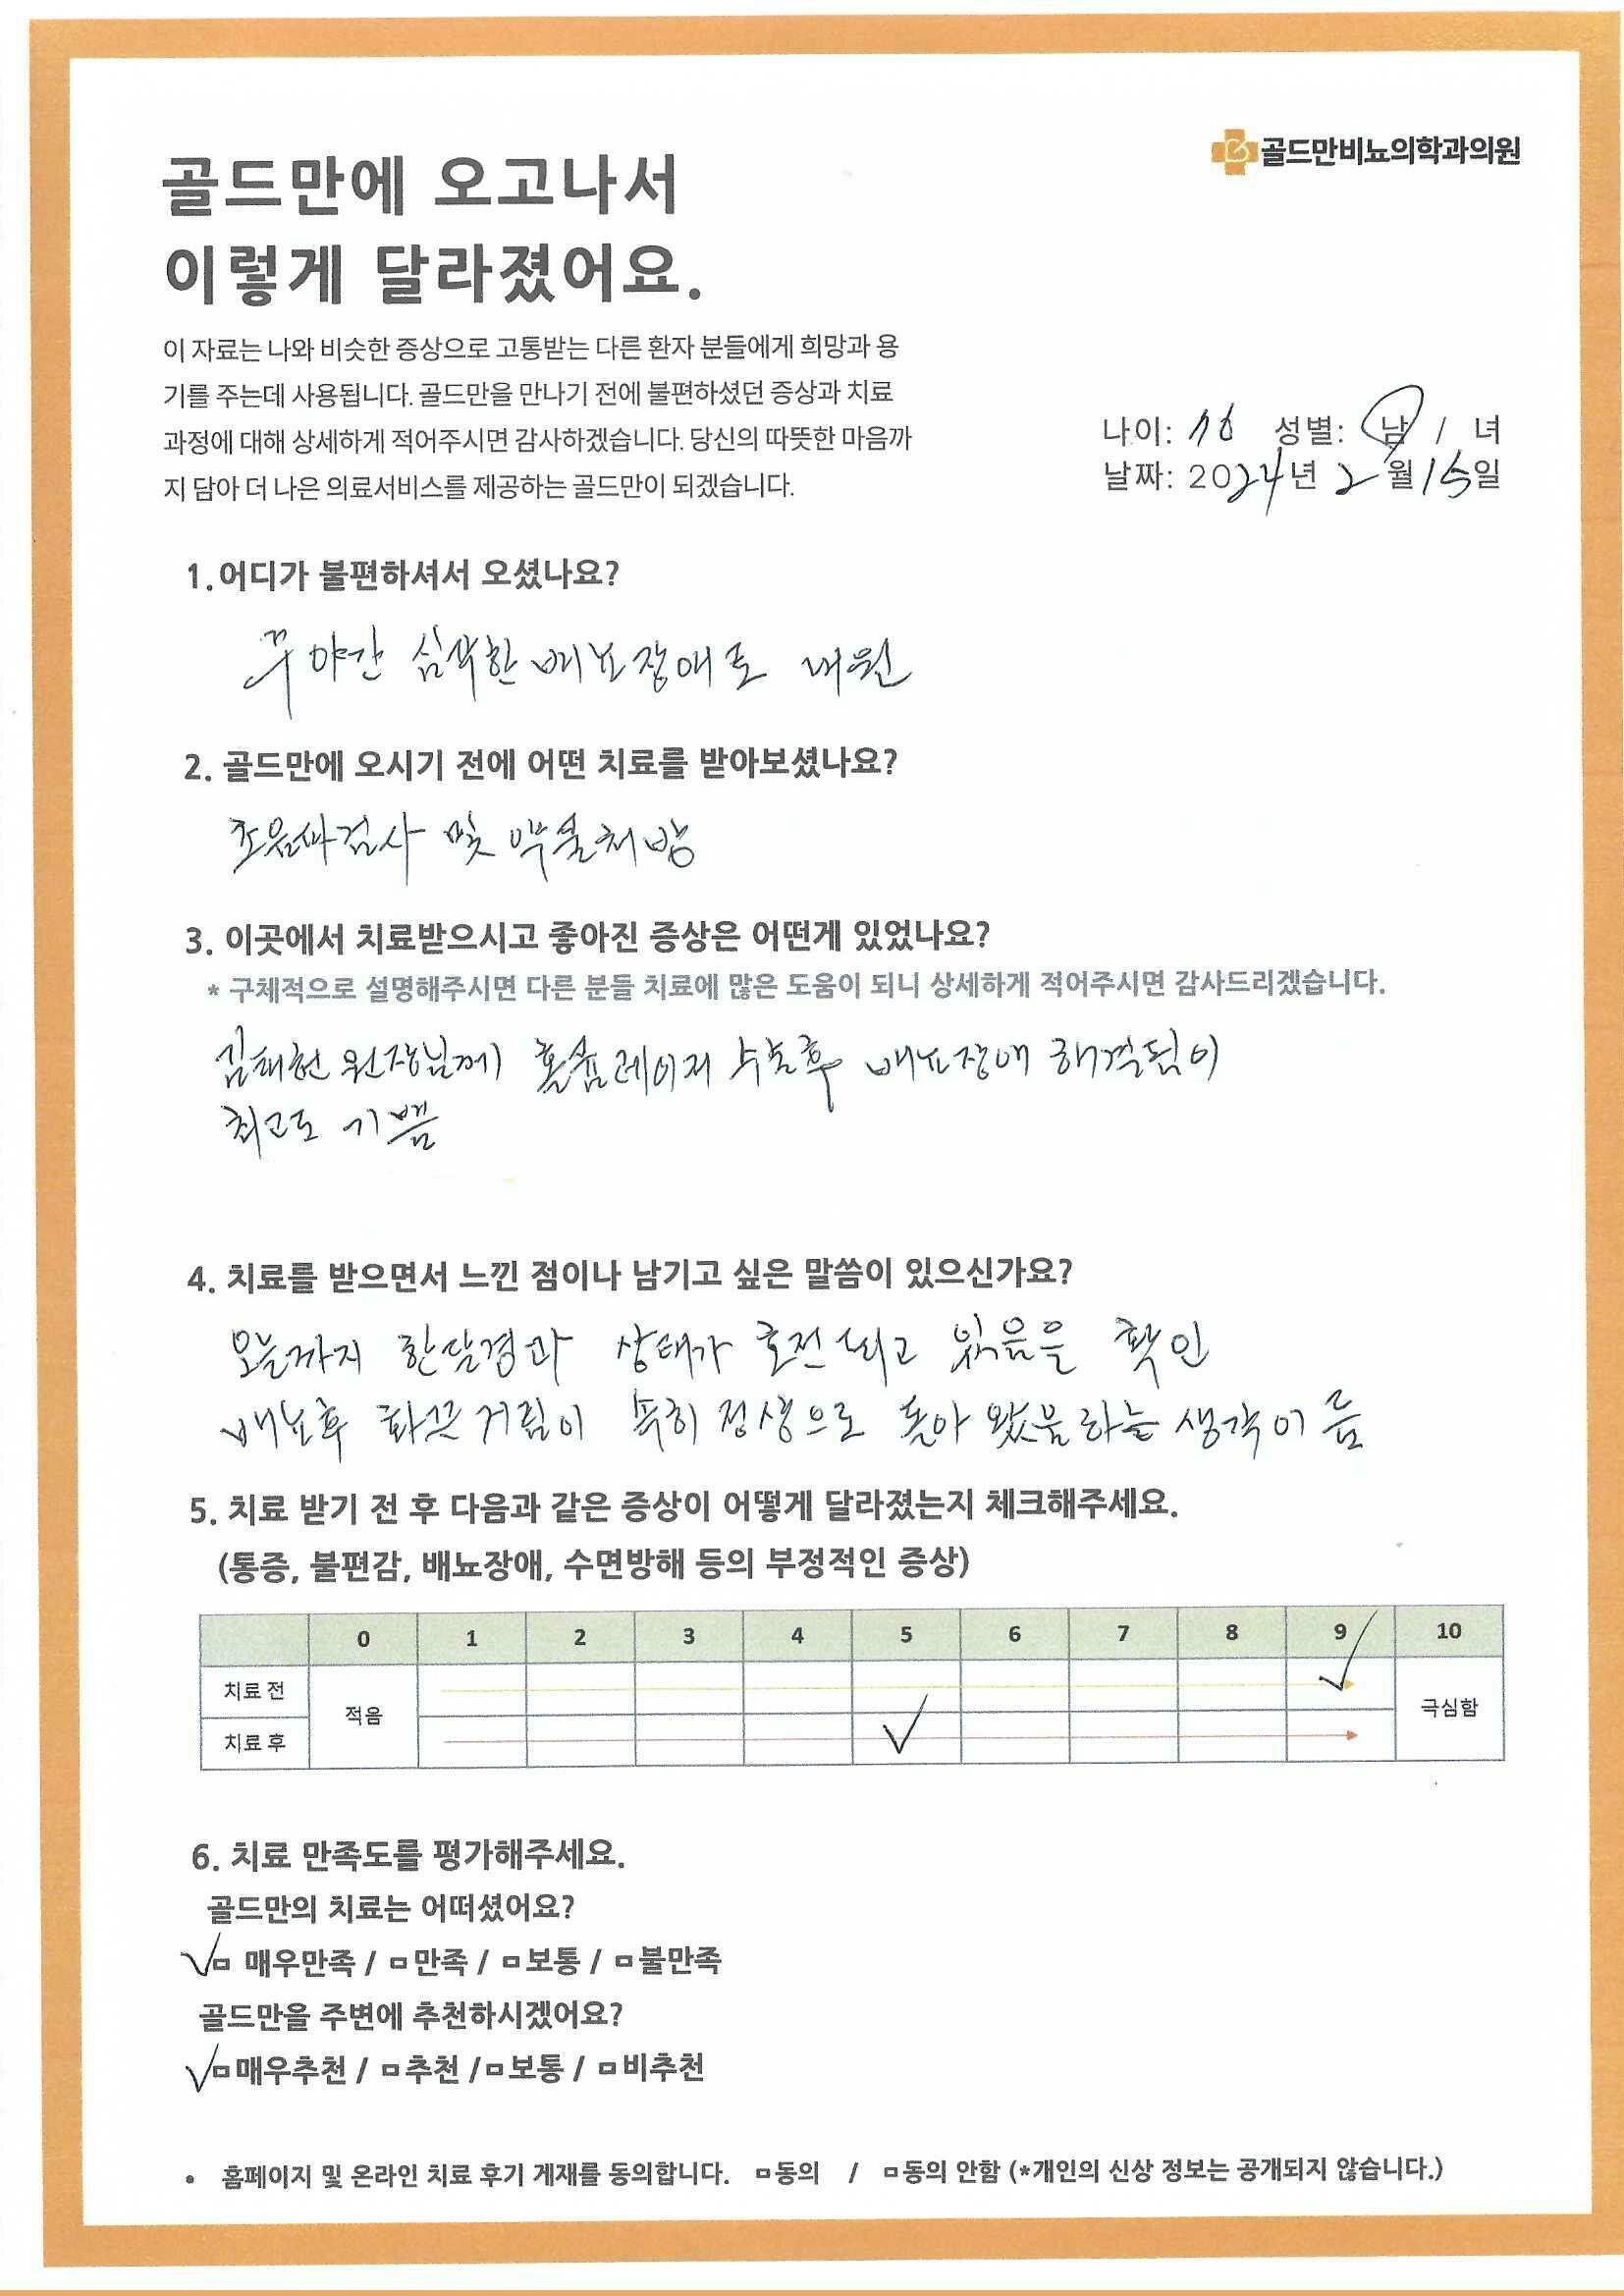 골드만비뇨의학과의원
골드만에 오고나서
이렇게 달라졌어요.
이 자료는 나와 비슷한 증상으로 고통받는 다른 환자 분들에게 희망과 용
기를 주는데 사용됩니다. 골드만을 만나기 전에 불편하셨던 증상과 치료
과정에 대해 상세하게 적어주시면 감사하겠습니다. 당신의 따뜻한 마음까
지 담아 더 나은 의료서비스를 제공하는 골드만이 되겠습니다.
나이: 성별: 남 / 녀
날짜: 2024년 2월 15일
1.어디가 불편하셔서 오셨나요?
야간 심각한 배뇨장애로 내원
2. 골드만에 오시기 전에 어떤 치료를 받아보셨나요?
초음파검사 및 약물처방
3. 이곳에서 치료받으시고 좋아진 증상은 어떤게 있었나요?
* 구체적으로 설명해주시면 다른 분들 치료에 많은 도움이 되니 상세하게 적어주시면 감사드리겠습니다.
김태헌 원장님께 홀뮴레이저 수술후 배뇨장애 해결됨이
최고로 기쁨
4. 치료를 받으면서 느낀 점이나 남기고 싶은 말씀이 있으신가요?
오늘까지 한달경과 상태가 호전되고 있음을 확인
배뇨후 화끈거림이 특히 정상으로 돌아왔음하는 생각이 듬
5. 치료 받기 전 후 다음과 같은 증상이 어떻게 달라졌는지 체크해주세요.
(통증, 불편감, 배뇨장애, 수면방해 등의 부정적인 증상)
0 1 2 3 4 5 6 7 8 9 10
치료 전
적음 극심함
치료 후
6. 치료 만족도를 평가해주세요.
골드만의 치료는 어떠셨어요?
매우만족 / 만족 / 보통 / 불만족
골드만을 주변에 추천하시겠어요?
매우추천 / 추천 / 보통 / 비추천
• 홈페이지 및 온라인 치료 후기 게재를 동의합니다. 동의 / 동의 안함 (*개인의 신상 정보는 공개되지 않습니다.)